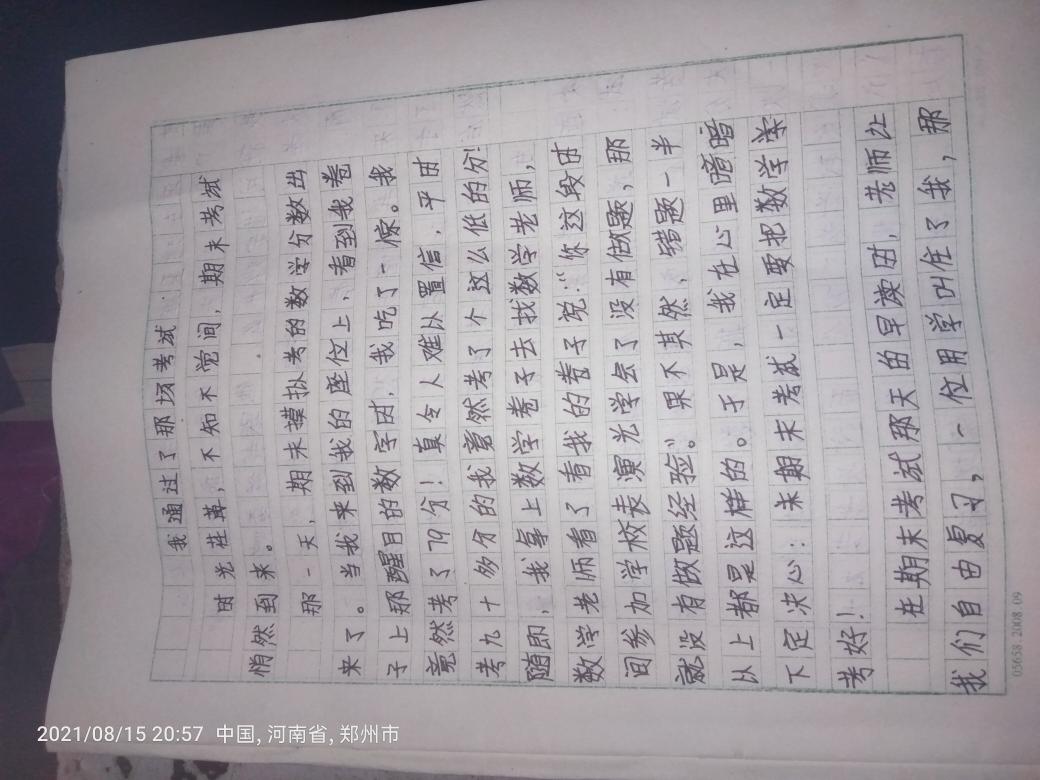 我通过了那场考试
时光荏苒，不知不觉间，期末考试
悄然到来。
那一天，期末摸扑考的数学分数出
来了。当我来到我的座位上，看到我卷
子上那醒目的数字时，我吃了一惊。我
竟然考了79分！真令人难以置信，平时
考九十多分的我竟然考了个这么低的分！
随即，我拿上数学卷子去找数学老师，
数学老师看了看我的卷子说：“你这段时
间参加学校表演光学会了没有做题，那
就没有做题经验。”果不其然，错题一半
以上都是这样的。于是，我在心里暗暗
下定决心：末期末考试一定要把数学学
考好！
在期末考试那天的早读时，老师让
我们自由复习，一位用学叫住了我，那
05658.2008.09
2021/08/15 20:57 中国,河南省,郑州市